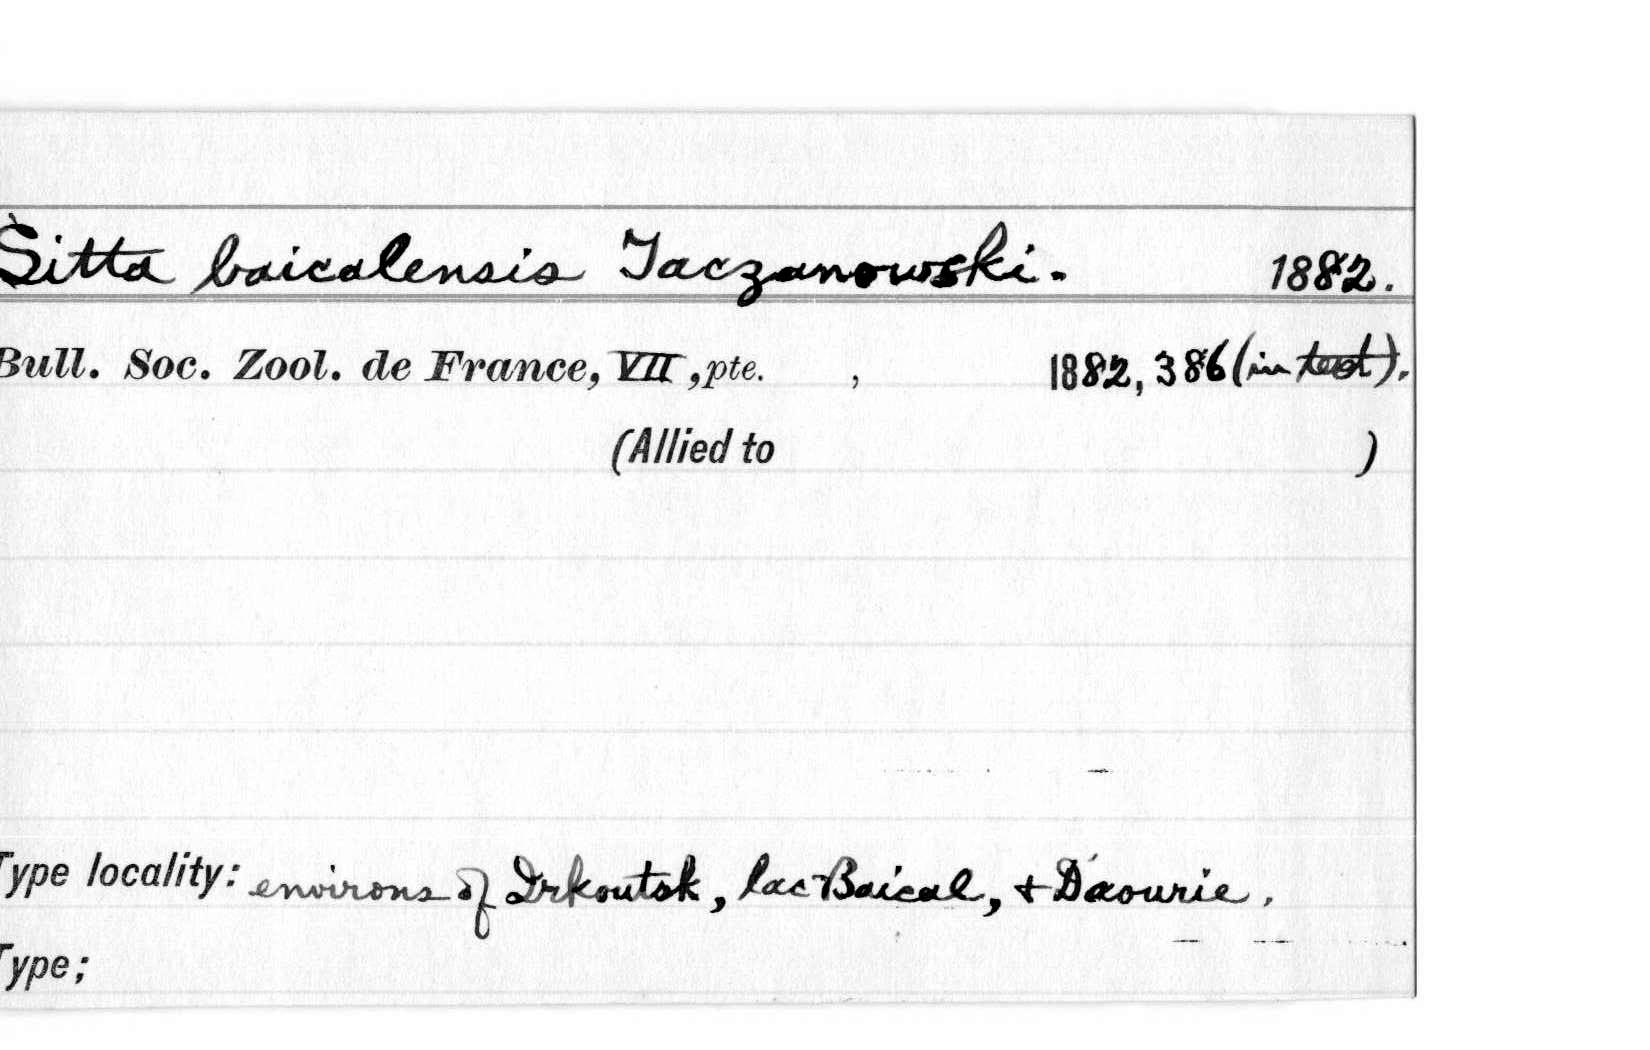 Sitta baicalensis Taczanowski. 1882.
Bull. Soc. Zool. de France, VII, pte. , 1882, 386 (in text).
(Allied to )
Type locality: environs of Irkoutsk, lac Baical, + Daourie.
Type;